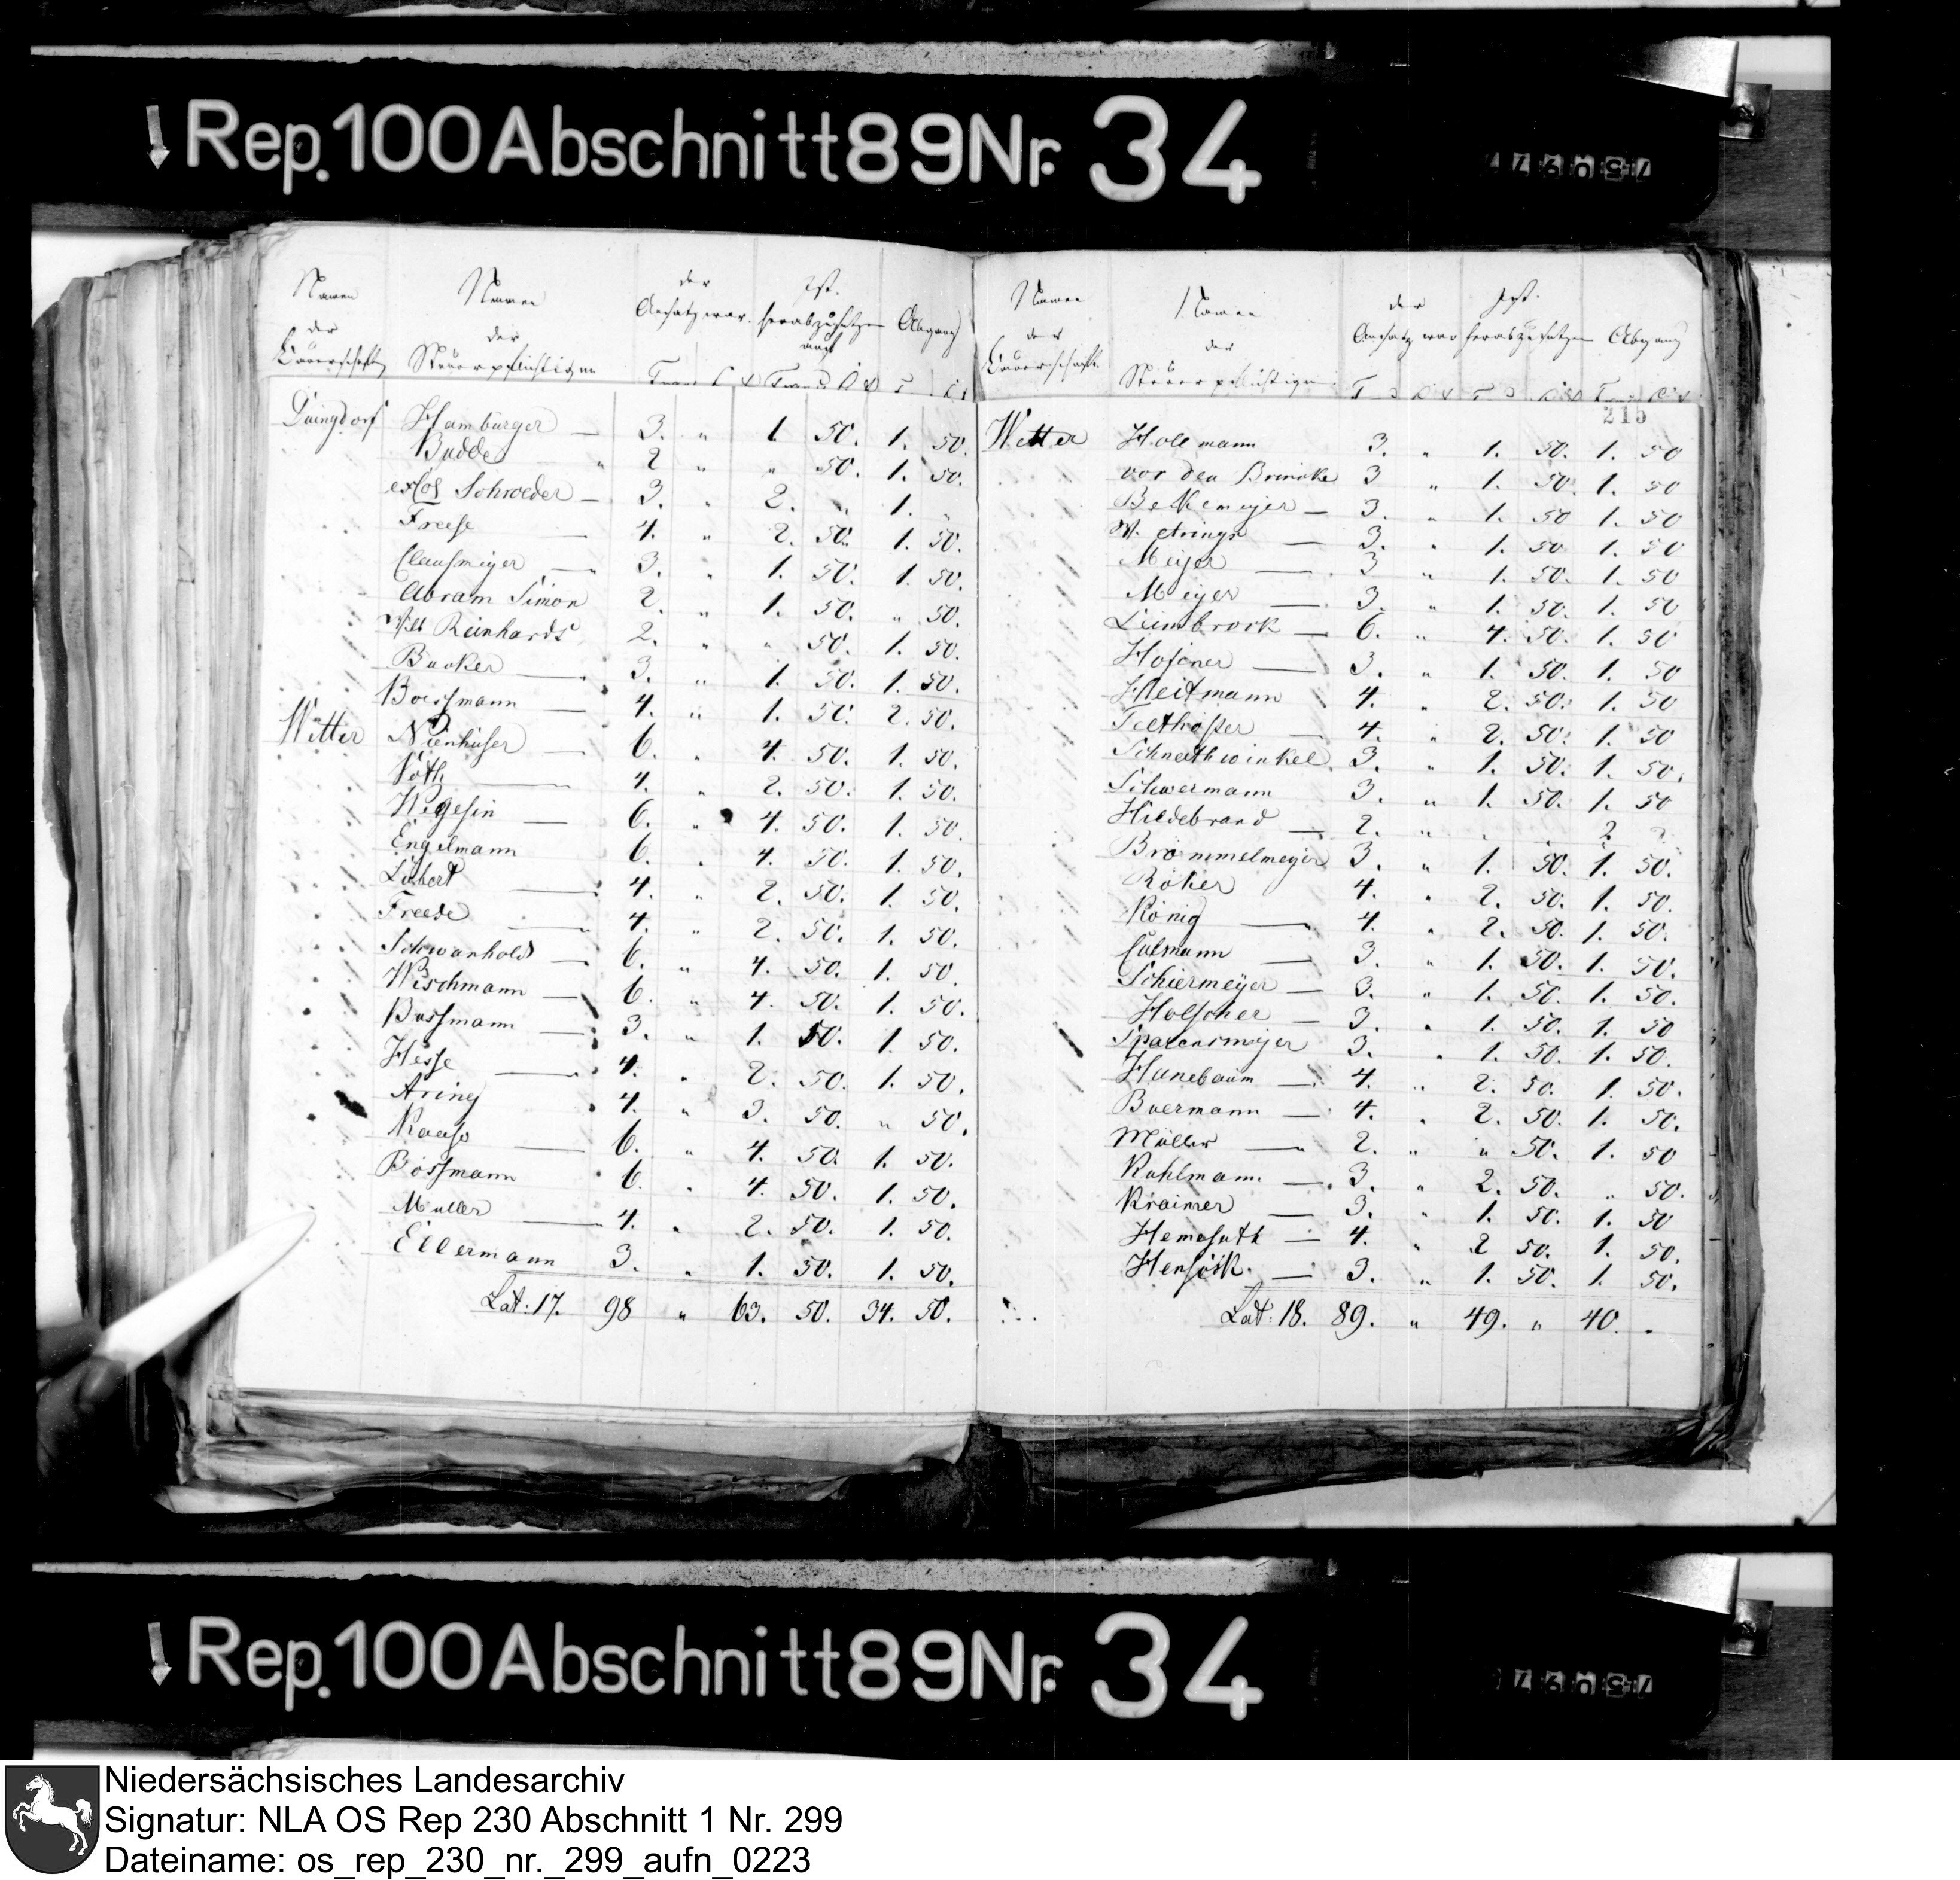 Rep. 100 Abschnitt 89 Nr. 34
Namen Namen der Ist.
der der Ansatz war. herabzusetzen Abgang
Bauerschaft Steuerpflichtigen auf
Hamburger — 3. " 1. 50. 1. 50.
Budde " 2 " " 50. 1. 50.
Schroeder — 3. " 2. " 1. "
Freese — 4. " 2. 50. 1. 50.
Clausmeyer — 3. " 1. 50. 1. 50.
Abram Simon 2. " 1. 50. " 50.
Reinhards 2. " " 50. 1. 50.
Bucker — 3. " 1. 50. 1. 50.
Bossmann — 4. " 1. 50. 2. 50.
Wetter Nienhuser — 6. " 4. 50. 1. 50.
Voth — 4. " 2. 50. 1. 50.
— 6. " 4. 50. 1. 50.
Engelmann 6. " 4. 50. 1. 50.
Lubert — 4. " 2. 50. 1. 50.
Freese — 4. " 2. 50. 1. 50.
Schwanhold — 6. " 4. 50. 1. 50.
Wischmann — 6. " 4. 50. 1. 50.
Bussmann — 3. " 1. 50. 1. 50.
Hesse — 4. " 2. 50. 1. 50.
Aring 4. " 3. 50. " 50.
— 6. " 4. 50. 1. 50.
Bossmann 6. " 4. 50. 1. 50.
Muller — 4. " 2. 50. 1. 50.
Ellermann 3. " 1. 50. 1. 50.
Lat: 17. 98 " 63. 50. 34. 50.
Namen Namen der Ist.
der der Ansatz war herabzusetzen Abgang
Bauerschaft. Steuerpflichtigen
215
Wetter Hollmann 3. " 1. 50. 1. 50
vor den Brincke 3 " 1. 50. 1. 50
Bethemeyer — 3. " 1. 50 1. 50
— 3. " 1. 50 1. 50
Meyer — 3 " 1. 50. 1. 50
Meyer — 3. " 1. 50. 1. 50
Leimbrock — 6. " 4. 50. 1. 50
— 3. " 1. 50. 1. 50
Heitmann 4. " 2. 50. 1. 50
— 4. " 2. 50. 1. 50
Schnathwinkel 3. " 1. 50. 1. 50.
Schwermann 3. " 1. 50. 1. 50
Hildebrand — 2. " " 2
Brömmelmeyer 3. " 1. 50. 1. 50.
Röker 4. " 2. 50. 1. 50.
König — 4. " 2. 50. 1. 50.
— 3. " 1. 50. 1. 50.
Schiermeyer — 3. " 1. 50. 1. 50.
Holscher — 3. " 1. 50. 1. 50
3. " 1. 50. 1. 50.
Hanebaum — 4. " 2. 50. 1. 50.
Buermann — 4. " 2. 50. 1. 50.
Müller — 2. " " 50. 1. 50
Kuhlmann — 3. " 2. 50. " 50.
Kraimer — 3. " 1. 50. 1. 50
— 4. " 2 50. 1. 50.
— 3. " 1. 50. 1. 50.
Lat: 18. 89. " 49. " 40. "
Rep. 100 Abschnitt 89 Nr. 34
Niedersächsisches Landesarchiv
Signatur: NLA OS Rep 230 Abschnitt 1 Nr. 299
Dateiname: os_rep_230_nr._299_aufn_0223